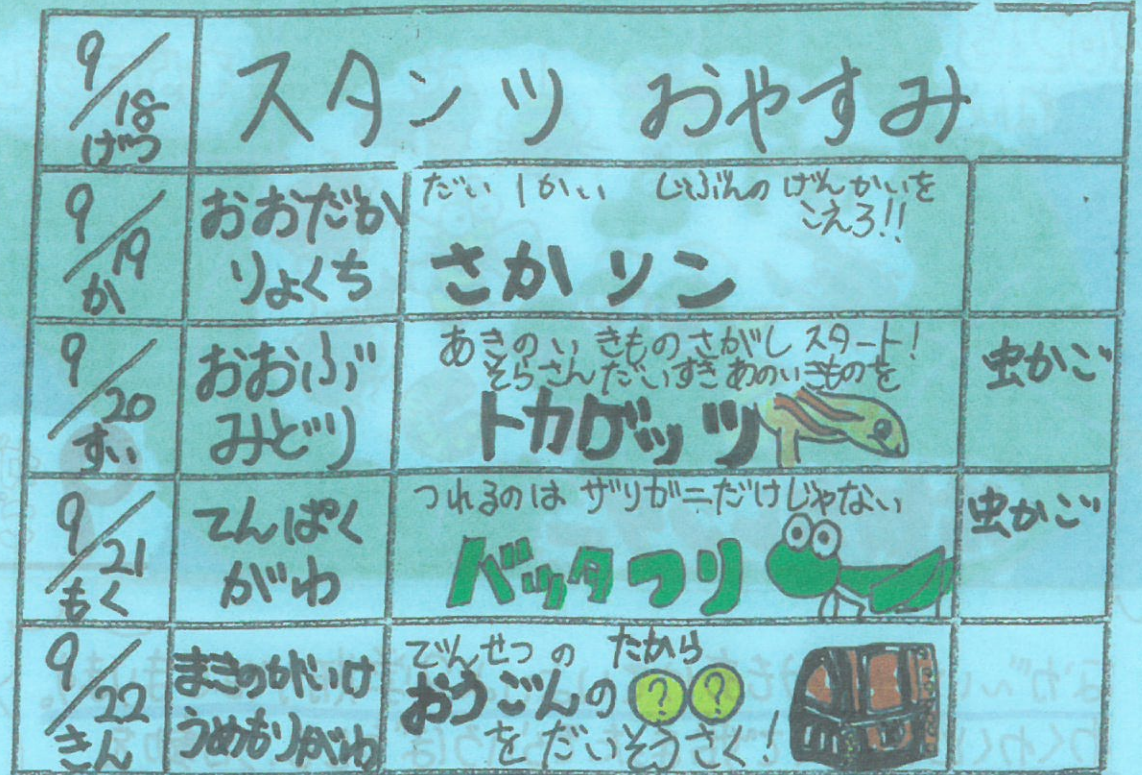 9/18
げつ
スタンツ おやすみ
9/19
か
おおだか
りょくち
だい1かい じぶんのげんかいを
こえろ!!
さかソン
9/20
すい
おおぶ
みどり
あきのいきものさがしスタート!
そらさんだいすきあのいきものを
トカゲッツ
虫かご
9/21
もく
てんぱく
がわ
つれるのはザリガニだけじゃない
バッタつり
虫かご
9/22
きん
まきのがいけ
うめもりがわ
でんせつの たから
おうごんの??
をだいそうさく!